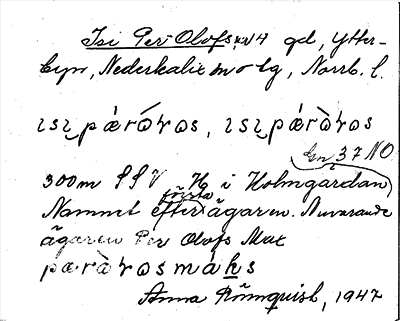 Isi Per Olofs KN4 gd, Ytter-
byn, Nederkalix m o lg, Norrb. l.
ɩsɩ̮ pǽrὼɤos, ɩsɩ̮ pǽrὼɤos
Gen 37 NO
300 m SSV Hg i Holmgårdan
Namnet efter första ägaren. Nuvarande
ägaren Per Olofs Max
pærὼɤos máks
Anna Rönnquist, 1947